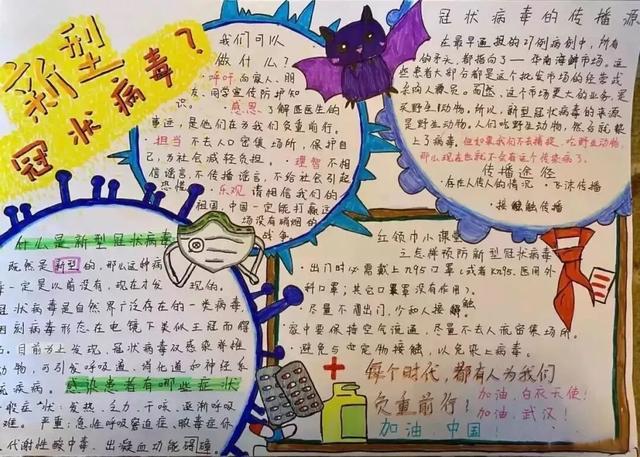 新型
冠状病毒?
我们可以
做什么?
呼吁 而家人、朋
友、同学宣传防护知
识。 感恩 了解医医生的
事迹,是他们在为我们负重前行。
担当 不去人口密集场所,保护自
己,为社会减轻负担。 理智 不相
信谣言,不传播谣言,不给社会引起
恐慌。 乐观 请相信我们的
祖国,中国一定能打赢这
场没有硝烟的
战争。
冠状病毒的传播源
在最早通报的27例病例中,所有
的矛头,都指向了——华南海鲜市场。这
些患者大部分都是这个批发市场的经营或
采购人员。而然,这个市场更大的业务,是
买卖野生动物。所以,新型冠状病毒的来源
是野生动物。人们吃野生动物,然后就被
上了病毒。但如果我们不去捕捉、吃野生动物,
那么现在也就不会有这个传染病了。
传播途径
·存在人传人的情况 ·飞沫传播
·接触传播
什么是新型冠状病毒
既然是新型的,那么这种病
毒一定是以前没有,现在才发
现的。
冠状病毒是自然界广泛存在的一类病毒,
因则病毒形态在电镜下类似王冠而
目前为止发现,冠状病毒仅感染脊椎
动物,可引发呼吸道、消化道和神经系
统疾病。 感染患者有哪些症状
一般症状:发热、乏力、干咳、逐渐呼吸
难。 严重:急性呼吸窘迫症、脓毒症休
代谢性酸中毒、出凝血功能碍障。
红领巾小课堂
之怎样预防新型冠状病毒
·出门时必需戴上n95口罩(或者Kn95、医用外
科口罩;其它口罩罩没有作用)。
·尽量不着出门,少和人接触
·家中要保持空气流通,尽量不去人流密集场所。
·避免与定物接触,以免染上病毒。
每个时代,都有人为我们
负重前行!
加油,白衣天使!
加油,武汉!
加油,中国!